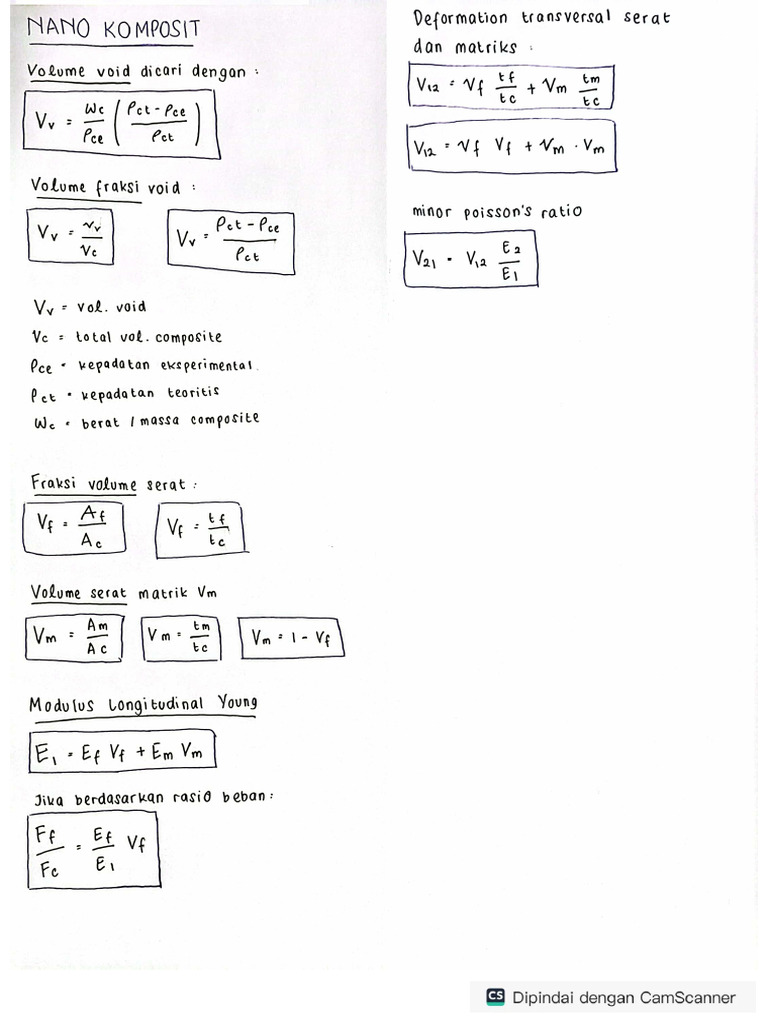 NANO KOMPOSIT
Volume void dicari dengan :
Vv = Wc/ρce (ρct - ρce / ρct)
Volume fraksi void :
Vv = vv/vc    Vv = ρct - ρce / ρct
Vv = vol. void
Vc = total vol. composite
ρce = kepadatan eksperimental.
ρct = kepadatan teoritis
Wc = berat / massa composite
Fraksi volume serat :
Vf = Af/Ac    Vf = tf/tc
Volume serat matrik Vm
Vm = Am/Ac    Vm = tm/tc    Vm = 1 - Vf
Modulus Longitudinal Young
E1 = Ef Vf + Em Vm
Jika berdasarkan rasio beban :
Ff/Fc = Ef/E1 Vf
Deformation transversal serat
dan matriks :
V12 = Vf tf/tc + Vm tm/tc
V12 = Vf Vf + Vm . Vm
minor poisson's ratio
V21 = V12 E2/E1
CS Dipindai dengan CamScanner